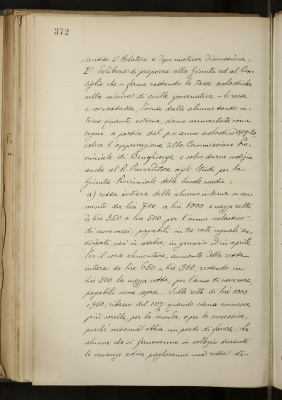 372
sentito il Relatore e dopo matura discussione,
1° Delibera di proporre alla Giunta ed al Con-
siglio che – ferme restando le tasse scolastiche
nella misura di quelle governative – le rette
e sovrattasse, dovute dalle alunne tanto in-
terne quanto esterne, siano aumentate come
segue a partire dal p.v. anno scolastico
salva l'approvazione della Commissione
di e salvo darne notizia
anche al R. Provveditore agli Studi per la
Giunta Provinciale delle Scuole medie:
a) retta intiera delle alunne interne a au-
mento da lire 700 a lire 1000 e mezza retta
di lire 350 a lire 500, per l'anno scolastico
di nove mesi, pagabili in tre rate uguali an-
ticipate, cioè in ottobre, in gennaio ed in aprile.
Per il corso elementare, aumento della retta
intera da lire 650 a lire 950, restando in
lire 500 la mezza retta, per l'anno di nove mesi
pagabile come sopra. Sulle rette di lire 1000
e 950, ribasso del 10% quando siano ammesse
più sorelle, per la seconda e per le successive,
purché nessuna abbia un posto di favore. Le
alunne che si fermeranno in collegio durante
le vacanze estive pagheranno una retta di-